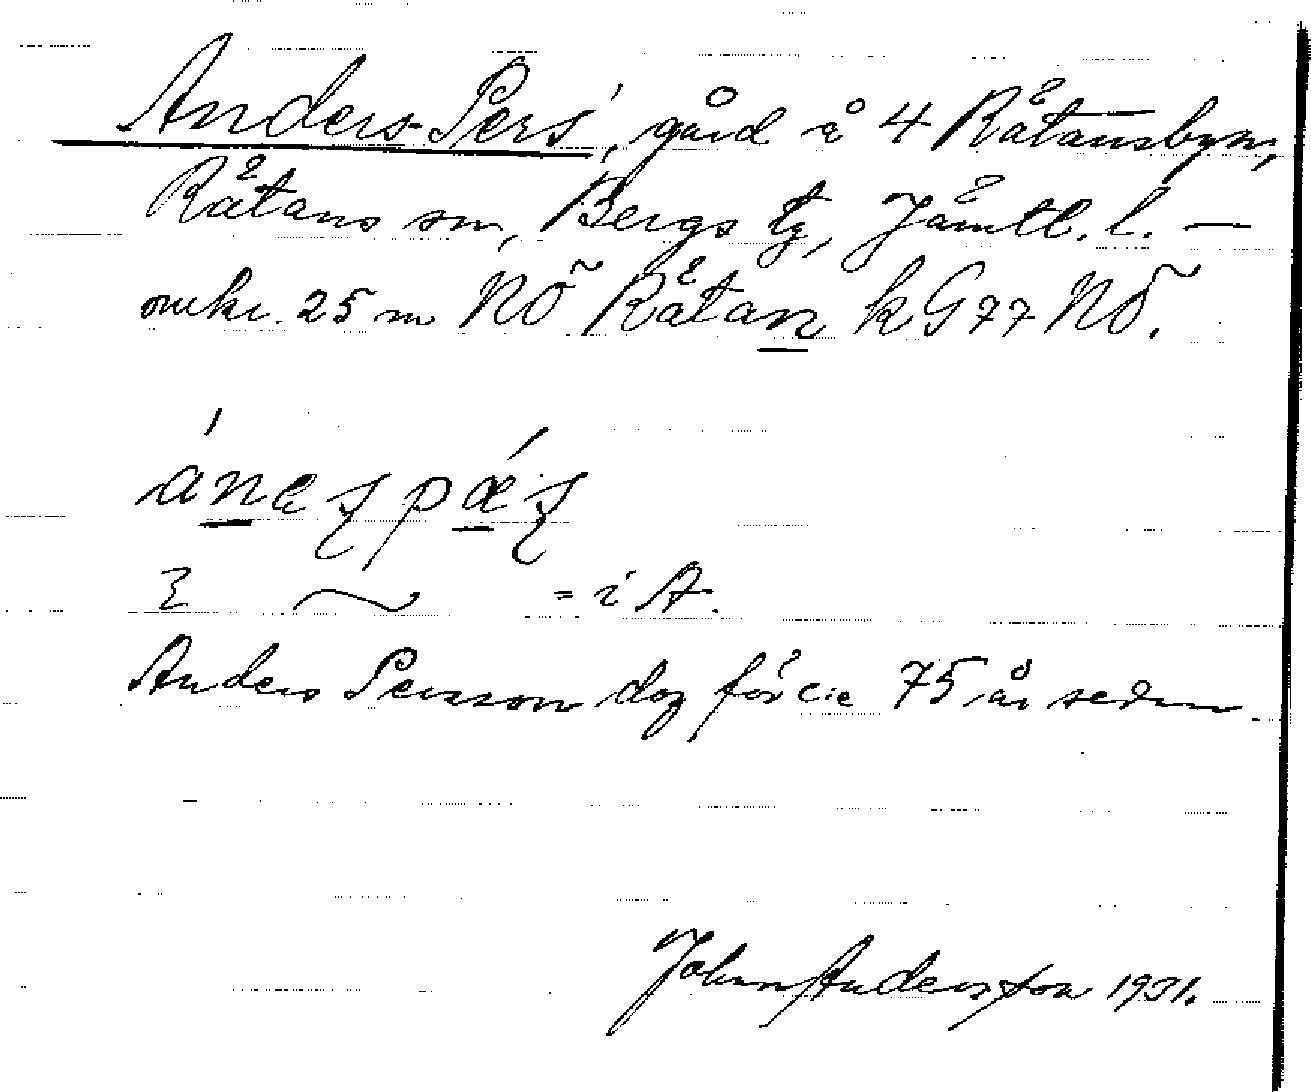 Anders-Pers', gård å 4 Rätansbyn,
Rätans sn, Bergs tg, Jämtl. l. —
omkr. 25 m NÖ Rätan k G77 NÖ.
ánes pǽs
~ = i A.
Anders Persson dog för c:a 75 år sedan
John Andersson 1931.